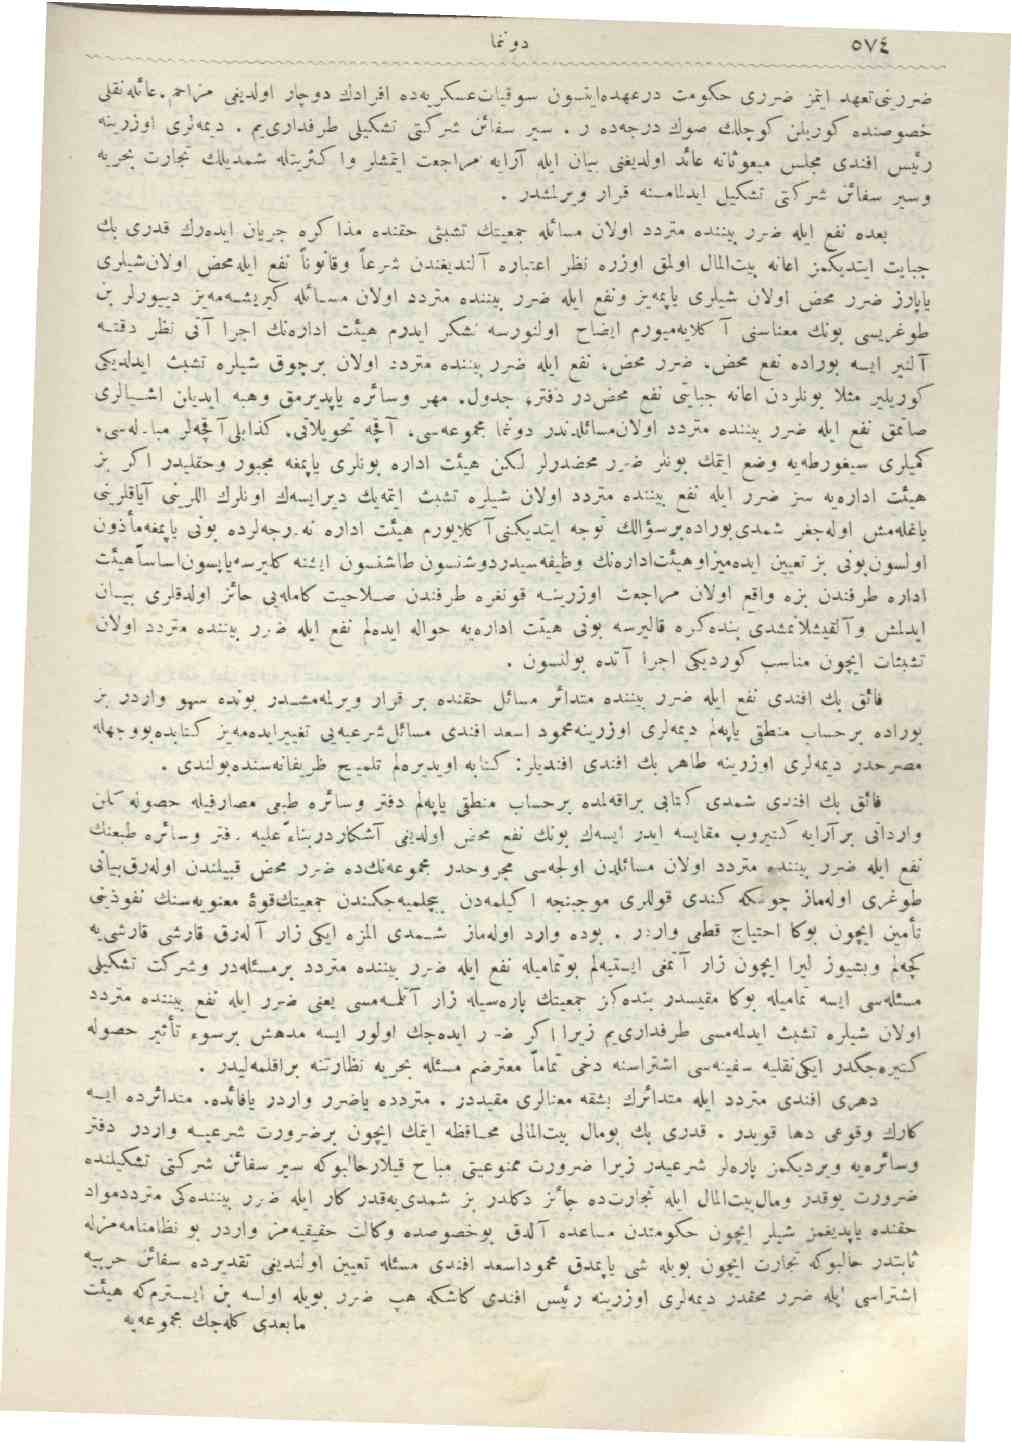 ٥٧٤
دونما
ضررینی تعهد ایتمز ضرری حکومت درعهده ایتسون سوقیات عسکریه ده افرادك دوچار اولدیغی مزاحم. عائله نقلی
خصوصنده کوریلن کوچلك صوك درجه ده ر . سیر سفائن شرکتی تشکیلی طرفداری یم . دیمه لری اوزرینه
رئیس افندی مجلس مبعوثانه عائد اولدیغنی بیان ایله آرایه مراجعت ایتمشلر و اکثریتله شمدیلك تجارت بحریه
وسیر سفائن شرکتی تشکیل ایدلمامسنه قرار ویرلمشدر .
بعده نفع ایله ضرر بیننده متردد اولان مسائله جمعیتك تشبثی حقنده مذاکره جریان ایده رك قدری بك
جبایت ایتدیکمز اعانه بیت المال اولمق اوزره نظر اعتباره آلندیغندن شرعاً وقانوناً نفع ایله محض اولان شیلری
یاپارز ضرر محض اولان شیلری یاپمه یز ونفع ایله ضرر بیننده متردد اولان مسائله کیریشه مه یز دییورلر بن
طوغریسی بونك معناسنی آکلایه میورم ایضاح اولنورسه تشکر ایدرم هیئت اداره نك اجرا آتی نظر دقته
آلنیر ایسه بوراده نفع محض، ضرر محض، نفع ایله ضرر بیننده متردد اولان برچوق شیلره تشبث ایدلدیکی
کوریلیر مثلا بونلردن اعانه جبایتی نفع محض در دفتر، جدول، مهر وسائره یاپدیرمق وهبه ایدیلن اشیالری
صاتمق نفع ایله ضرر بیننده متردد اولان مسائلدندر دونما مجموعه سی، آقچه تحویلاتی، کذا بلی آقچه لر مبادله سی،
کمیلری سیغورطه یه وضع ایتمك بونلر ضرر محضدرلر لکن هیئت اداره بونلری یاپمغه مجبور وحقلیدر اکر بز
هیئت اداره یه سز ضرر ایله نفع بیننده متردد اولان شیلره تشبث ایتمه یك دیرایسه ك اونلرك اللرینی آیاقلرینی
باغله مش اوله جغز شمدی بوراده برسؤالك توجه ایتدیکنی آکلایورم هیئت اداره نه درجه لرده بونی یاپمغه مأذون
اولسون بونی بز تعیین ایده میز او هیئت اداره نك وظیفه سیدر دوشنسون طاشنسون ایشنه کلیرسه یاپسون اساساً هیئت
اداره طرفندن بزه واقع اولان مراجعت اوزرینه قونغره طرفندن صلاحیت کامله یی حائز اولدقلری بیان
ایدلمش وآلقیشلانمشدی بنده کزه قالیرسه بونی هیئت اداره یه حواله ایده لم نفع ایله ضرر بیننده متردد اولان
تشبثات ایچون مناسب کوردیکی اجرا آتده بولنسون .
فائق بك افندی نفع ایله ضرر بیننده متدائر مسائل حقنده بر قرار ویرلمه مشدر بونده سهو واردر بز
بوراده برحساب منطقی یاپه لم دیمه لری اوزرینه محمود اسعد افندی مسائل شرعیه یی تغییر ایده مه یز کتابده بو وجهله
مصرحدر دیمه لری اوزرینه طاهر بك افندی افندیلر: کتابه اویدیره لم تلمیح ظریفانه سنده بولندی .
فائق بك افندی شمدی کتابی براقه لمده برحساب منطقی یاپه لم دفتر وسائره طبعی مصارفیله حصوله کلن
وارداتی بر آرایه کتیروب مقایسه ایدر ایسه ك بونك نفع محض اولدیغی آشکاردر بناءً علیه دفتر وسائره طبعنك
نفع ایله ضرر بیننده متردد اولان مسائلدن اولجه سی مجروحدر مجموعه نك ده ضرر محض قبیلندن اوله رق بیانی
طوغری اوله ماز چونکه کندی قوللری موجبنجه اکیلمه دن بیچلمیه جکندن جمعیتك قوۀ معنویه سنك نفوذینی
تأمین ایچون بوکا احتیاج قطعی واردر . بوده وارد اوله ماز شمدی المزه ایکی زار آله رق قارشی قارشی یه
کچه لم وبشیوز لیرا ایچون زار آتمغی ایستیه لم بوتمامیله نفع ایله ضرر بیننده متردد برمسئله در وشرکت تشکیلی
مسئله سی ایسه تمامیله بوکا مقیسدر بنده کز جمعیتك پاره سیله زار آتلمه مسی یعنی ضرر ایله نفع بیننده متردد
اولان شیلره تشبث ایدلمه مسی طرفداری یم زیرا اکر ضرر ایده جك اولور ایسه مدهش برسوء تأثیر حصوله
کتیره جکدر ایکی نقلیه سفینه سی اشتراسنه دخی تماماً معترضم مسئله بحریه نظارتنه براقلمه لیدر .
دهری افندی متردد ایله متدائرك بشقه معنالری مقیددر . مترددده یاضرر واردر یافائده، متدائرده ایسه
کارك وقوعی دها قویدر . قدری بك بومال بیت المالی محافظه ایتمك ایچون برضرورت شرعیه واردر دفتر
وسائره یه ویردیکمز پاره لر شرعیدر زیرا ضرورت ممنوعیتی مباح قیلار حالبوکه سیر سفائن شرکتی تشکیلنده
ضرورت یوقدر ومال بیت المال ایله تجارت ده جائز دکلدر بز شمدی یه قدر کار ایله ضرر بیننده کی متردد مواد
حقنده یاپدیغمز شیلر ایچون حکومتدن مساعده آلدق بوخصوصده وکالت حقیقیه مز واردر بو نظامنامه مزله
ثابتدر حالبوکه تجارت ایچون بویله شی یاپمدق محمود اسعد افندی مسئله تعیین اولندیغی تقدیرده سفائن حربیه
اشتراسی ایله ضرر محقدر دیمه لری اوزرینه رئیس افندی کاشکه هپ ضرر بویله اولسه بن ایسترم که هیئت
مابعدی کله جك مجموعه یه